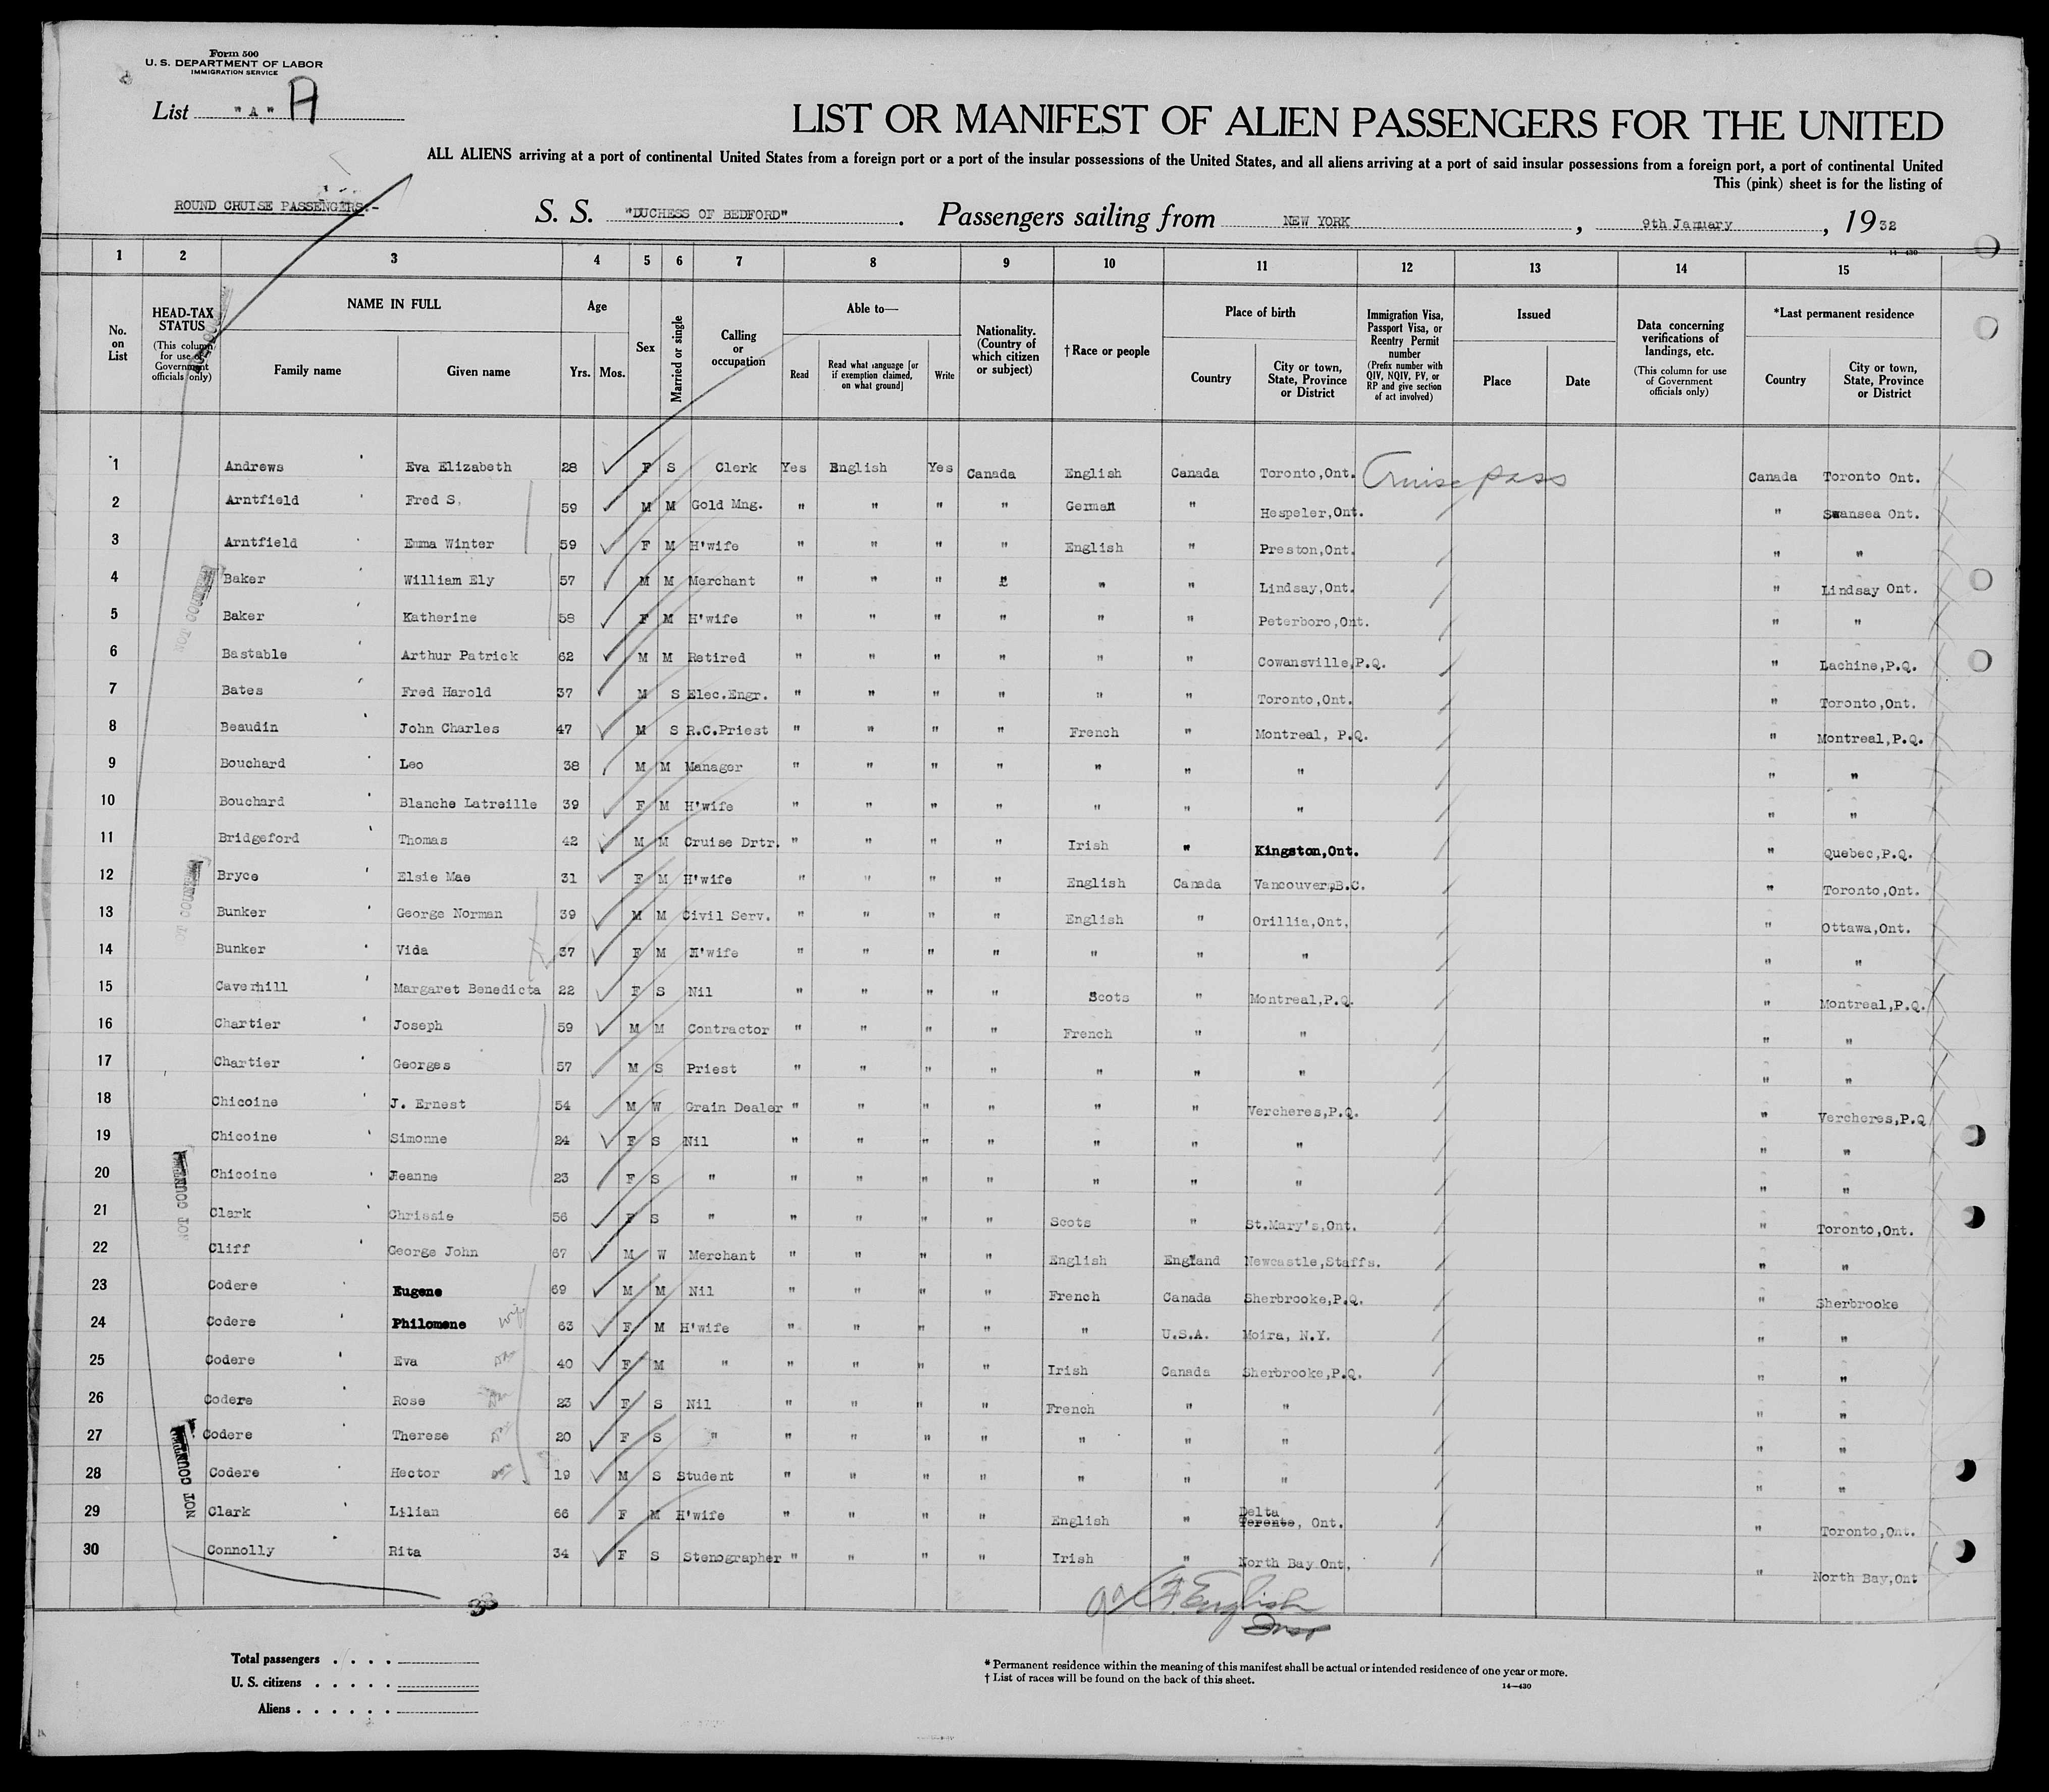 Form 500
U. S. DEPARTMENT OF LABOR
IMMIGRATION SERVICE
List "A" A
LIST OR MANIFEST OF ALIEN PASSENGERS FOR THE UNITED
ALL ALIENS arriving at a port of continental United States from a foreign port or a port of the insular possessions of the United States, and all aliens arriving at a port of said insular possessions from a foreign port, a port of continental United
This (pink) sheet is for the listing of
ROUND CRUISE PASSENGERS:-
S. S. "DUCHESS OF BEDFORD". Passengers sailing from NEW YORK, 9th January, 1932
14-430
1 2 3 4 5 6 7 8 9 10 11 12 13 14 15
No. on List
HEAD-TAX STATUS (This column for use of Government officials only)
NAME IN FULL
Family name
Given name
Age
Yrs. Mos.
Sex
Married or single
Calling or occupation
Able to—
Read
Read what language [or if exemption claimed, on what ground]
Write
Nationality. (Country of which citizen or subject)
† Race or people
Place of birth
Country
City or town, State, Province or District
Immigration Visa, Passport Visa, or Reentry Permit number (Prefix number with QIV, NQIV, PV, or RP and give section of act involved)
Issued
Place
Date
Data concerning verifications of landings, etc. (This column for use of Government officials only)
*Last permanent residence
Country
City or town, State, Province or District
1 Andrews Eva Elizabeth 28 F S Clerk Yes English Yes Canada English Canada Toronto,Ont. Cruise pass Canada Toronto Ont.
2 Arntfield Fred S. 59 M M Gold Mng. " " " " German " Hespeler,Ont. " Swansea Ont.
3 Arntfield Emma Winter 59 F M H'wife " " " " English " Preston,Ont. " "
4 Baker William Ely 57 M M Merchant " " " " " " Lindsay,Ont. " Lindsay Ont.
5 Baker Katherine 58 F M H'wife " " " " " " Peterboro,Ont. " "
6 Bastable Arthur Patrick 62 M M Retired " " " " " " Cowansville,P.Q. " Lachine,P.Q.
7 Bates Fred Harold 37 M S Elec.Engr. " " " " " " Toronto,Ont. " Toronto,Ont.
8 Beaudin John Charles 47 M S R.C.Priest " " " " French " Montreal, P.Q. " Montreal,P.Q.
9 Bouchard Leo 38 M M Manager " " " " " " " " "
10 Bouchard Blanche Latreille 39 F M H'wife " " " " " " " " "
11 Bridgeford Thomas 42 M M Cruise Drtr. " " " " Irish " Kingston,Ont. " Quebec,P.Q.
12 Bryce Elsie Mae 31 F M H'wife " " " " English Canada Vancouver,B.C. " Toronto,Ont.
13 Bunker George Norman 39 M M Civil Serv. " " " " English " Orillia,Ont. " Ottawa,Ont.
14 Bunker Vida 37 F M H'wife " " " " " " " " "
15 Caverhill Margaret Benedicta 22 F S Nil " " " " Scots " Montreal,P.Q. " Montreal,P.Q.
16 Chartier Joseph 59 M M Contractor " " " " French " " " "
17 Chartier Georges 57 M S Priest " " " " " " " " "
18 Chicoine J. Ernest 54 M W Grain Dealer " " " " " " Vercheres,P.Q. " Vercheres,P.Q
19 Chicoine Simonne 24 F S Nil " " " " " " " " "
20 Chicoine Jeanne 23 F S " " " " " " " " " "
21 Clark Chrissie 56 F S " " " " " Scots " St.Mary's,Ont. " Toronto,Ont.
22 Cliff George John 67 M W Merchant " " " " English England Newcastle,Staffs. " "
23 Codere Eugene 69 M M Nil " " " " French Canada Sherbrooke,P.Q. " Sherbrooke
24 Codere Philomene wife 63 F M H'wife " " " " " U.S.A. Moira, N.Y. " "
25 Codere Eva 40 F M " " " " " Irish Canada Sherbrooke,P.Q. " "
26 Codere Rose 23 F S Nil " " " " French " " " "
27 Codere Therese 20 F S " " " " " " " " " "
28 Codere Hector son 19 M S Student " " " " " " " " "
29 Clark Lilian 66 F M H'wife " " " " English " Delta Toronto, Ont. " Toronto,Ont.
30 Connolly Rita 34 F S Stenographer " " " " Irish " North Bay Ont. " North Bay,Ont
NOT COUNTED
NOT COUNTED
NOT COUNTED
NOT COUNTED
30
F. English
Insp
Total passengers
U. S. citizens
Aliens
* Permanent residence within the meaning of this manifest shall be actual or intended residence of one year or more.
† List of races will be found on the back of this sheet.
14-430